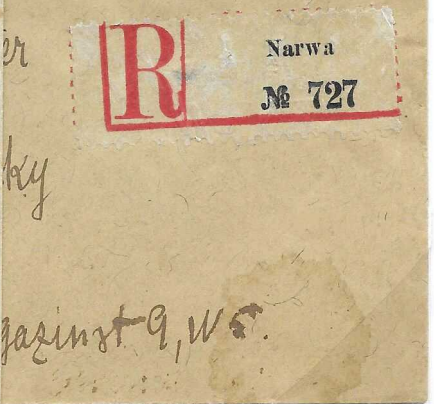 er
R
Narwa
№ 727
ky
gazinst 9, W 5.